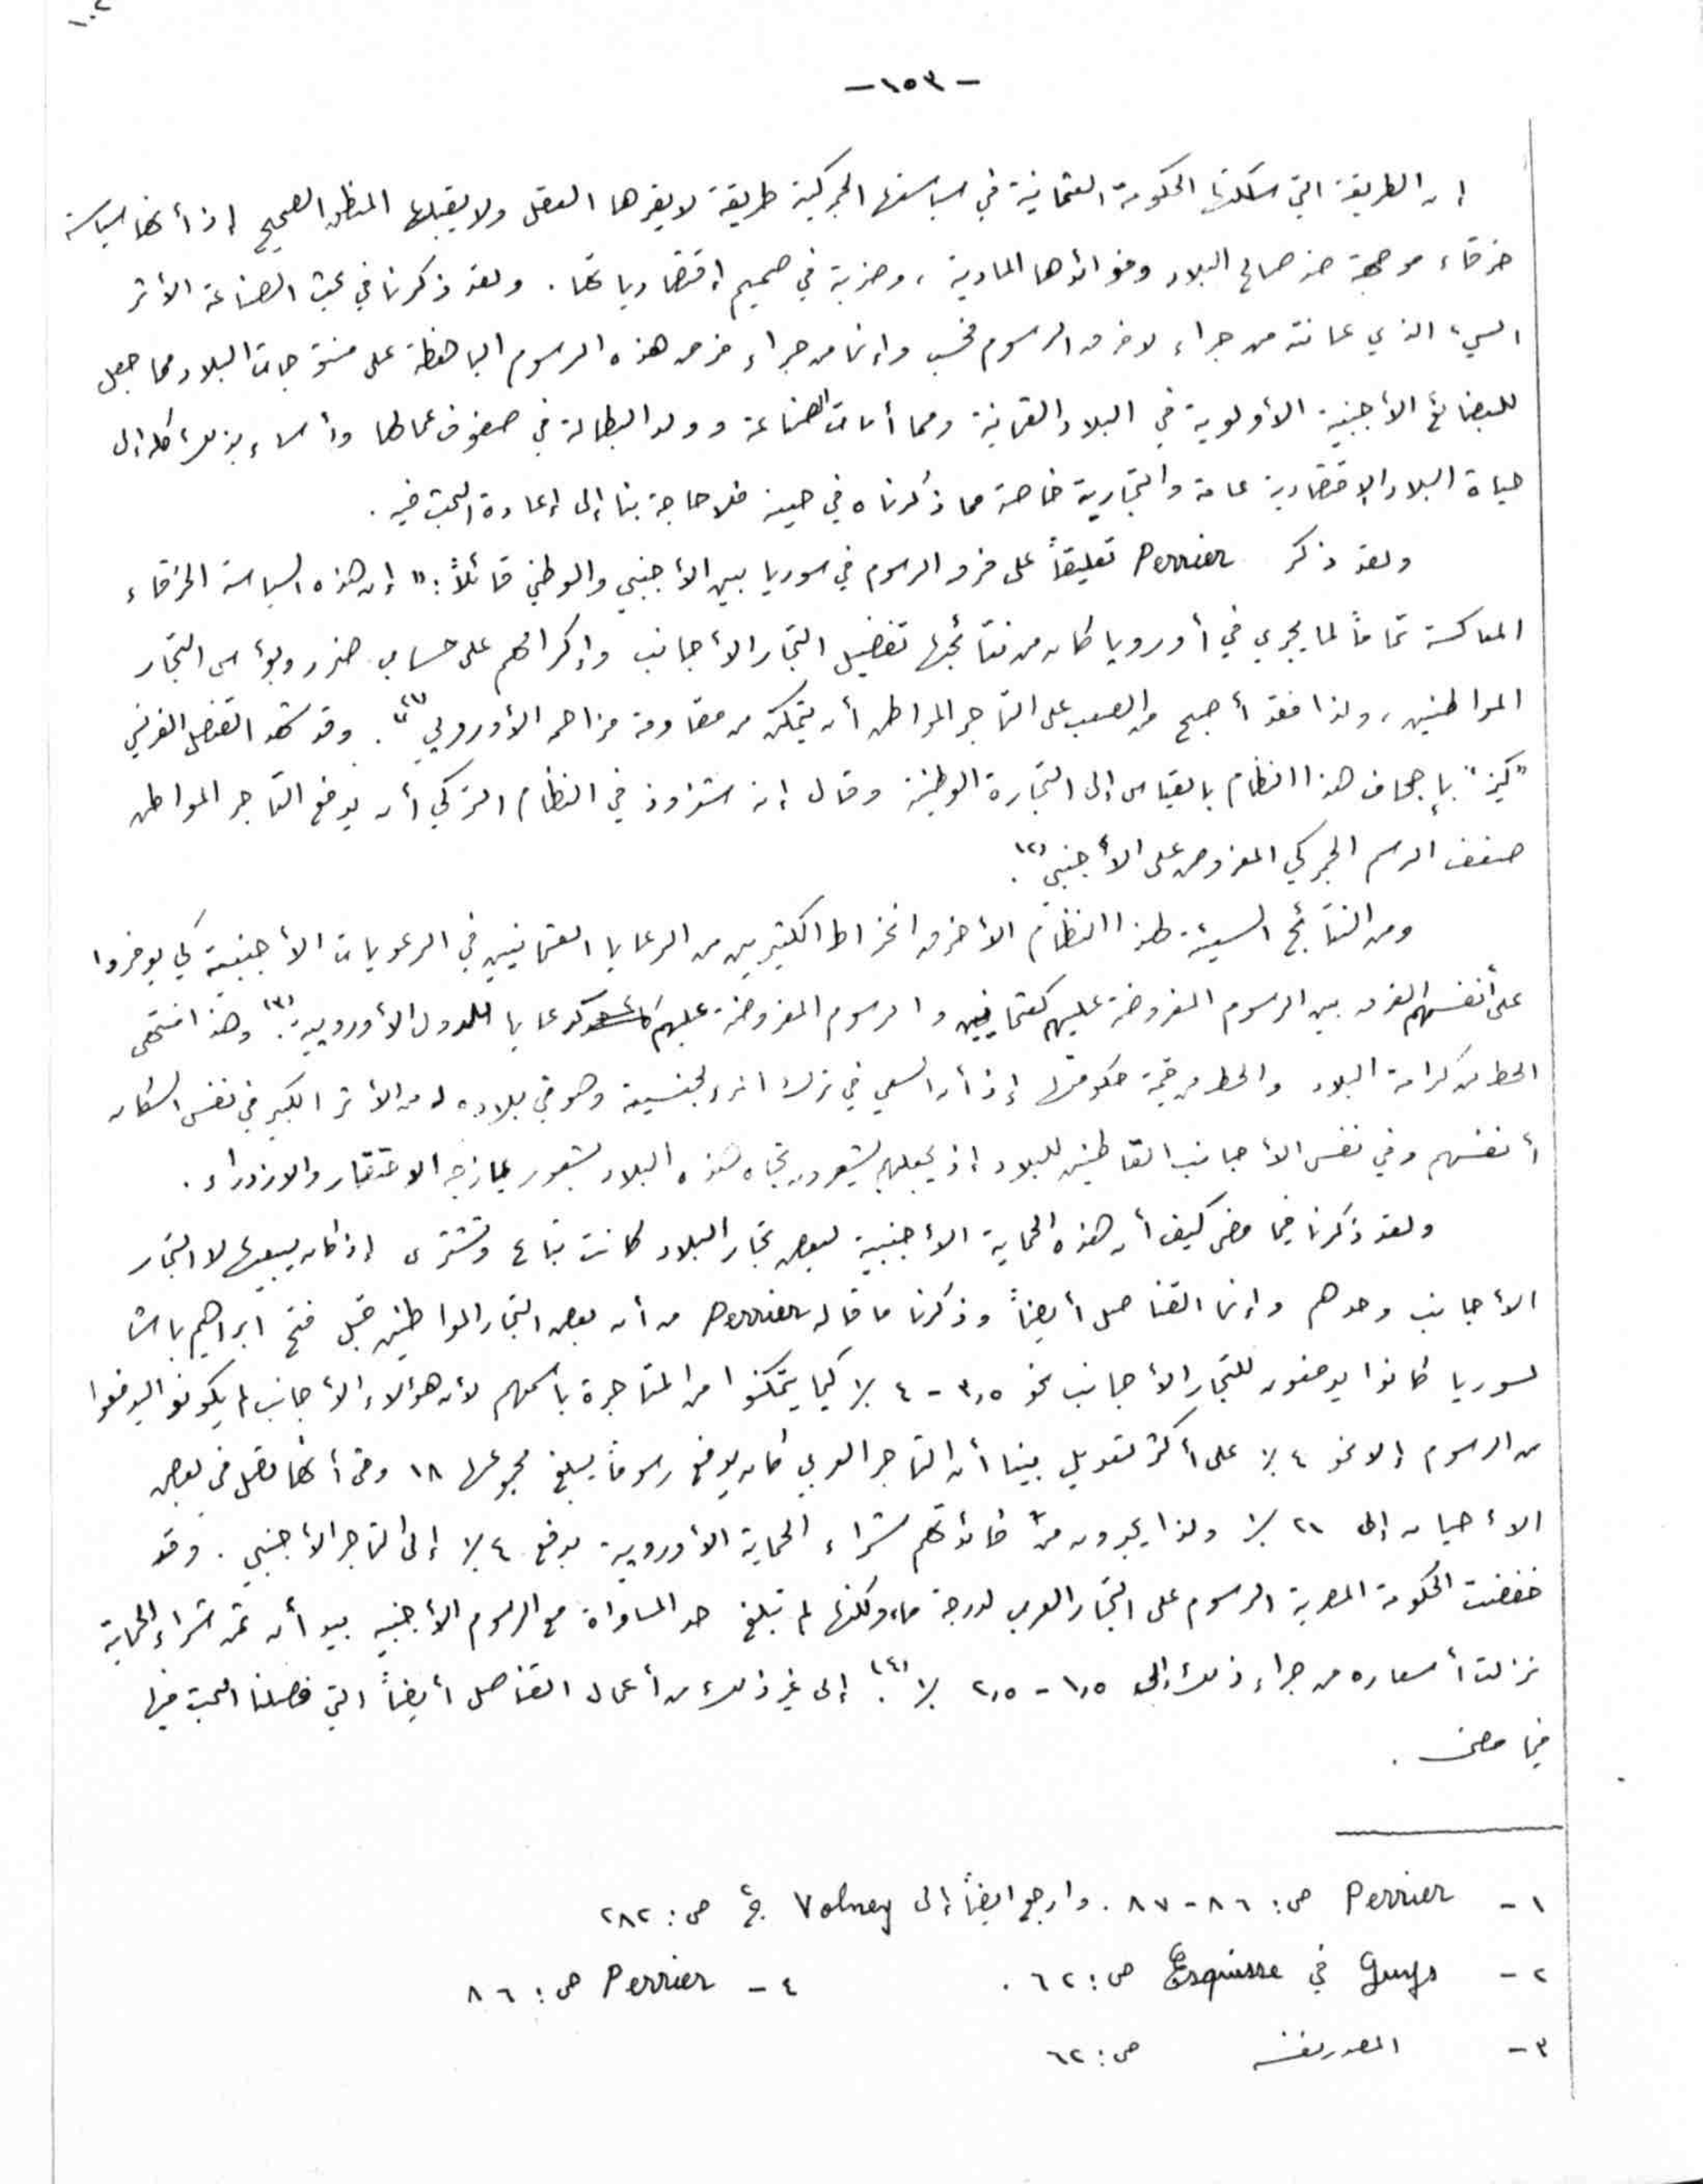 -١٥٣-
إن الطريقة التي سلكتها الحكومة العثمانية في سياستها الجمركية طريقة لا يقرها العقل ولا يقبلها المنطق الصحيح إذ أنها سياسة
خرقاء موجهة ضد صالح البلاد وفوائدها المادية ، وضربة في صميم إقتصادياتها . ولقد ذكرنا في بحث الصناعة الأثر
السيء الذي عانته من جراء لا فرق الرسوم فحسب وإنما من جراء فرض هذه الرسوم الباهظة على منتوجات البلاد مما جعل
للبضائع الأجنبية الأولوية في البلاد العثمانية ومما أمات الصناعة وولد البطالة في صفوف عمالها وأساء بذلك كله إلى
حياة البلاد الإقتصادية عامة والتجارية خاصة مما ذكرناه في حينه فلا حاجة بنا إلى إعادة البحث فيه .
ولقد ذكر Perrier تعليقاً على فرق الرسوم في سوريا بين الأجنبي والوطني قائلاً : " إن هذه السياسة الخرقاء
المعاكسة تماماً لما يجري في أوروبا كان من نتائجها تفضيل التجار الأجانب وإكرامهم على حساب ضرر وبؤس التجار
المواطنين ، ولذا فقد أصبح من الصعب على التاجر المواطن أن يتمكن من مقاومة مزاحمه الأوروبي "(١). وقد شهد القنصل الفرنسي
"كيز" بإجحاف هذا النظام بالقياس إلى التجارة الوطنية وقال إنه شذوذ في النظام التركي أن يدفع التاجر المواطن
ضعف الرسم الجمركي المفروض على الأجنبي (٢).
ومن النتائج السيئة لهذا النظام الأخرق انخراط الكثيرين من الرعايا العثمانيين في الرعويات الأجنبية كي يوفروا
على أنفسهم الفرق بين الرسوم المفروضة عليهم كعثمانيين والرسوم المفروضة عليهم كرعايا للدول الأوروبية (٣). وهذا منتهى
الحط من كرامة البلاد والحط من قيمة حكومتها إذ أن السعي في ترك المرء لجنسيته وهو في بلاده له من الأثر الكبير في نفس السكان
أنفسهم وفي نفس الأجانب القاطنين للبلاد إذ يجعلهم يشعرون تجاه هذه البلاد بشعور يمازجه الاحتقار والازدراء .
ولقد ذكرنا فيما مضى كيف أن هذه الحماية الأجنبية لبعض تجار البلاد كانت تباع وتشترى إذ كان يبيعها لا التجار
الأجانب وحدهم وإنما القناصل أيضاً وذكرنا ما قاله Perrier من أن بعض التجار المواطنين قبل فتح ابراهيم باشا
لسوريا كانوا يدفعون للتجار الأجانب نحو ٣,٥ - ٤ % كيما يتمكنوا من المتاجرة باسمهم لأن هؤلاء الأجانب لم يكونوا ليدفعوا
من الرسوم إلا نحو ٤ % على أكثر تعديل بينما أن التاجر العربي كان يدفع رسوماً يبلغ مجموعها ١٨ وحتى أنها تصل في بعض
الأحيان إلى ٢١ % ولذا يجدون من فائدتهم شراء الحماية الأوروبية بدفع ٤ % إلى التاجر الأجنبي . وقد
خفضت الحكومة المصرية الرسوم على التجار العرب لدرجة ما ، ولكنها لم تبلغ حد المساواة مع الرسوم الأجنبية بيد أن ثمن شراء الحماية
نزلت أسعاره من جراء ذلك إلى ١,٥ - ٢,٥ % (٤). إلى غير ذلك من أعمال القناصل أيضاً التي فصلنا البحث فيها
فيما مضى .
١- Perrier ص : ٨٦ - ٨٧ . وارجع ايضاً إلى Volney ج٢ ص : ٢٨٢
٢- Guys في Esquisse ص : ٦٢ . ٤- Perrier ص : ٨٦
٣- المصدر نفسه ص : ٦٢